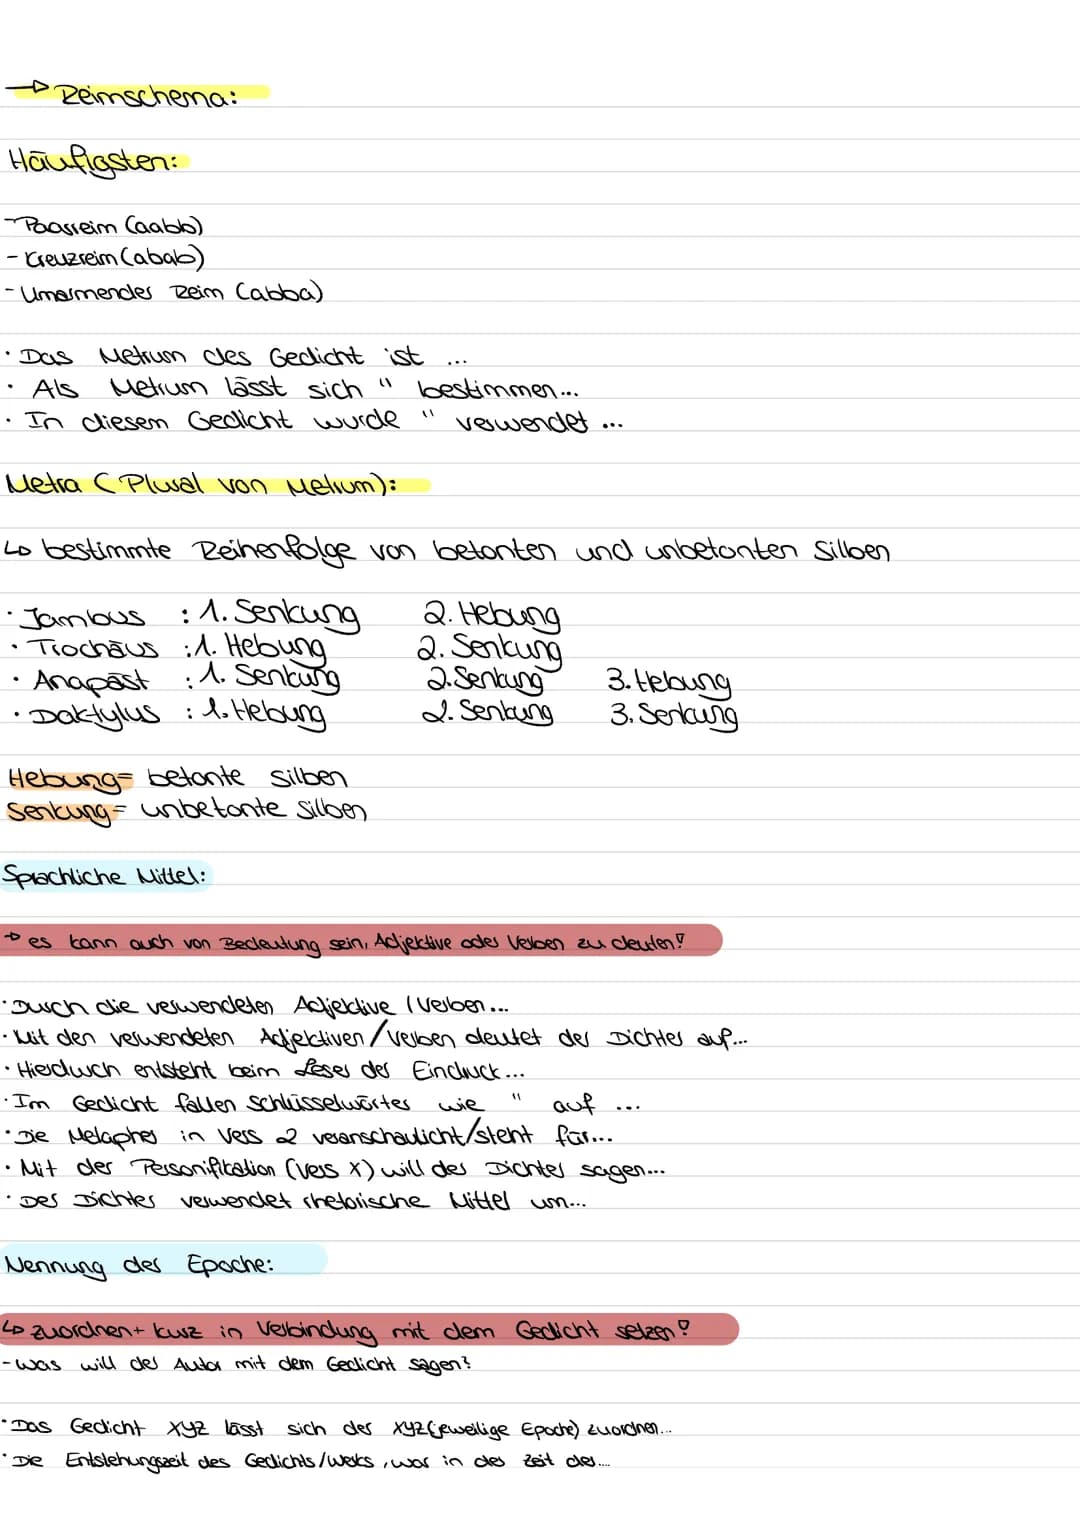 → Reimschema:
Häufigsten:
- Paarreim (aabb)
- Kreuzreim (abab)
- Umarmendes Reim (abba)
· Das Metrum des Gedicht ist ...
· Als Metrum lässt sich " bestimmen...
· In diesem Gedicht wurde " verwendet ...
Metra (Plural von Metrum):
↳ bestimmte Reihenfolge von betonten und unbetonten Silben
· Jambus : 1. Senkung 2. Hebung
· Trochäus : 1. Hebung 2. Senkung
· Anapäst : 1. Senkung 2. Senkung 3. Hebung
· Daktylus : 1. Hebung 2. Senkung 3. Senkung
Hebung= betonte Silben
Senkung= unbetonte Silben
Sprachliche Mittel:
→ es kann auch von Bedeutung sein, Adjektive oder Verben zu deuten!
· Durch die verwendeten Adjektive / Verben...
· Mit den verwendeten Adjektiven / Verben deutet der Dichter auf...
· Hierdurch entsteht beim Leser der Eindruck...
· Im Gedicht fallen Schlüsselwörter wie " auf ...
· Die Metapher in Vers 2 veranschaulicht/steht für...
· Mit der Personifikation (Vers X) will der Dichter sagen...
· Der Dichter verwendet rhetorische Mittel um...
Nennung der Epoche:
↳ zuordnen + kurz in Verbindung mit dem Gedicht setzen!
- was will der Autor mit dem Gedicht sagen?
· Das Gedicht XYZ lässt sich der XYZ (jeweilige Epoche) zuordnen...
· Die Entstehungszeit des Gedichts/Werks, war in der Zeit der...